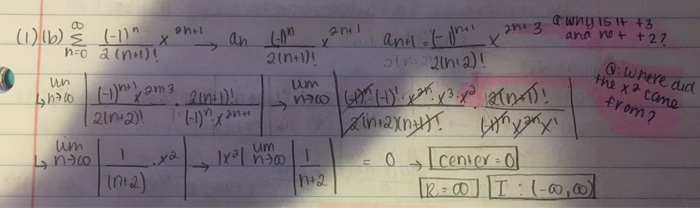 (1)(b) ∞ Σ n=0 (-1)ⁿ / 2(n+1)! x²ⁿ⁺¹ → an (-1)ⁿ / 2(n+1)! x²ⁿ⁺¹ an+1 = (-1)ⁿ⁺¹ / 2(n+2)! x²ⁿ⁺³ Q: why is it +3 and not +2?
↳ lim n→∞ | (-1)ⁿ⁺¹ x²ⁿ⁺³ / 2(n+2)! · 2(n+1)! / (-1)ⁿ x²ⁿ⁺¹ | → lim n→∞ | (-1)ⁿ·(-1)¹·x²ⁿ·x³·x² / 2(n+2)(n+1)! · 2(n+1)! / (-1)ⁿ x²ⁿ x¹ | Q: where did the x² come from?
↳ lim n→∞ | 1 / (n+2) · x² | → |x²| lim n→∞ | 1 / n+2 | = 0 → center = 0
R = ∞ I: (-∞, ∞)